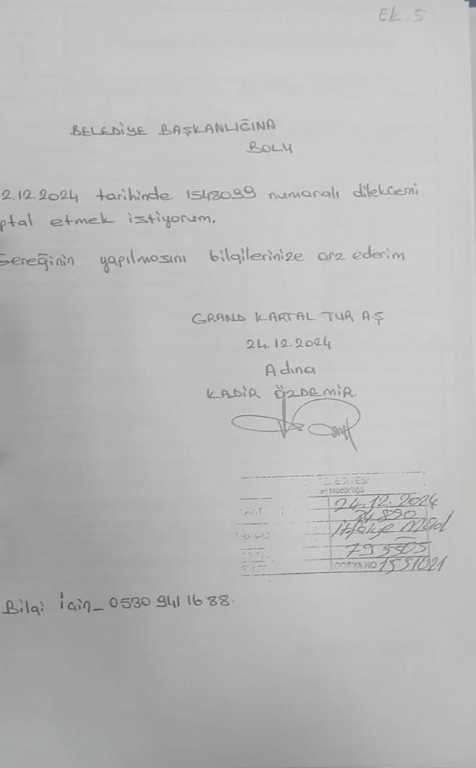 Ek. 5
BELEDİYE BAŞKANLIĞINA
BOLU
2.12.2024 tarihinde 1548099 numaralı dilekcemi
ptal etmek istiyorum.
Gereğinin yapılmasını bilgilerinize arz ederim
GRAND KARTAL TUR AŞ
24.12.2024
Adına
KADİR ÖZDEMİR
24.12.2024
34890
İtfaiye Müd
795505
DOSYA NO 1551021
Bilgi İçin_ 0530 941 16 88.